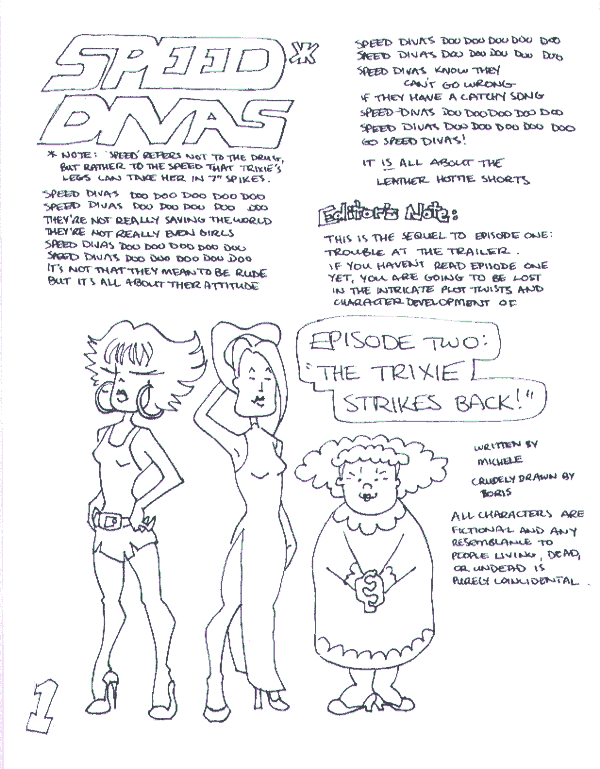 SPEED*
DIVAS
* NOTE: 'SPEED' REFERS NOT TO THE DRUG,
BUT RATHER TO THE SPEED THAT TRIXIE'S
LEGS CAN TAKE HER IN 7" SPIKES.
SPEED DIVAS DOO DOO DOO DOO DOO
SPEED DIVAS DOO DOO DOO DOO DOO
THEY'RE NOT REALLY SAVING THE WORLD
THEY'RE NOT REALLY EVEN GIRLS
SPEED DIVAS DOO DOO DOO DOO DOO
SPEED DIVAS DOO DOO DOO DOO DOO
IT'S NOT THAT THEY MEAN TO BE RUDE
BUT IT'S ALL ABOUT THEIR ATTITUDE
SPEED DIVAS DOO DOO DOO DOO DOO
SPEED DIVAS DOO DOO DOO DOO DOO
SPEED DIVAS KNOW THEY
CAN'T GO WRONG
IF THEY HAVE A CATCHY SONG
SPEED DIVAS DOO DOO DOO DOO DOO
SPEED DIVAS DOO DOO DOO DOO DOO
GO SPEED DIVAS!
IT IS ALL ABOUT THE
LEATHER HOTTIE SHORTS
Editor's Note:
THIS IS THE SEQUEL TO EPISODE ONE:
TROUBLE AT THE TRAILER.
IF YOU HAVEN'T READ EPISODE ONE
YET, YOU ARE GOING TO BE LOST
IN THE INTRICATE PLOT TWISTS AND
CHARACTER DEVELOPMENT OF
EPISODE TWO:
"THE TRIXIE
STRIKES BACK!"
WRITTEN BY
MICHELE
CRUDELY DRAWN BY
BORIS
ALL CHARACTERS ARE
FICTIONAL AND ANY
RESEMBLANCE TO
PEOPLE LIVING, DEAD,
OR UNDEAD IS
PURELY COINCIDENTAL.
1